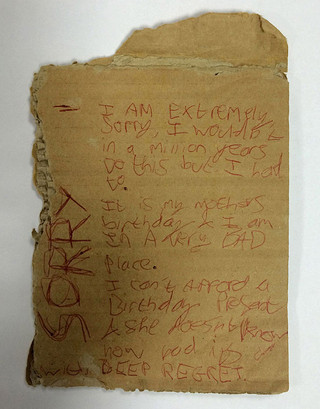 SORRY
I AM Extremely
Sorry, I wouldn't
in a million years
Do this but I had
to.
It is my mothers
birthday & I am
in A very BAD
place.
I can't afford a
Birthday Present
& she doesn't know
how bad it is
with DEEP REGRET.